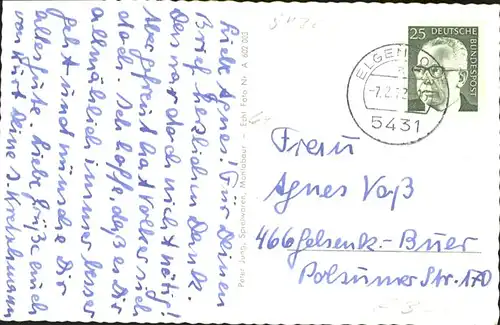 Liebe Agnes! Für Deinen
Brief herzlichen Dank.
Das war doch nicht nötig!
Aber gefreut hat Volker sich
doch. Ich hoffe, daß es Dir
allmählich immer besser
geht und wünsche Dir
alles gute. Liebe Grüße auch
von Kurt Deine J. Kretzmann
Peter Jung, Spielwaren, Montabaur - Echt Foto Nr. A 602 003
25 DEUTSCHE
BUNDESPOST
ELGENDORF
5431
Frau
Agnes Voß
466 Gelsenk.-Buer
Polsumer Str. 170